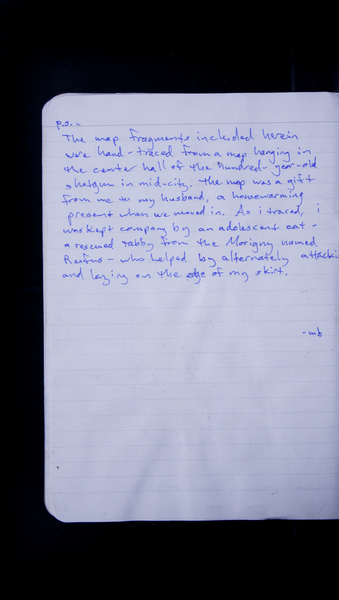 p.s. -
The map fragments included herein
were hand-traced from a map hanging in
the center hall of the hundred-year-old
shotgun in mid-city. The map was a gift
from me to my husband, a housewarming
present when we moved in. As i traced, i
was kept company by an adolescent cat -
a rescued tabby from the Marigny named
Rufus - who helped by alternately attacki
and lazing on the edge of my skirt.
-mb